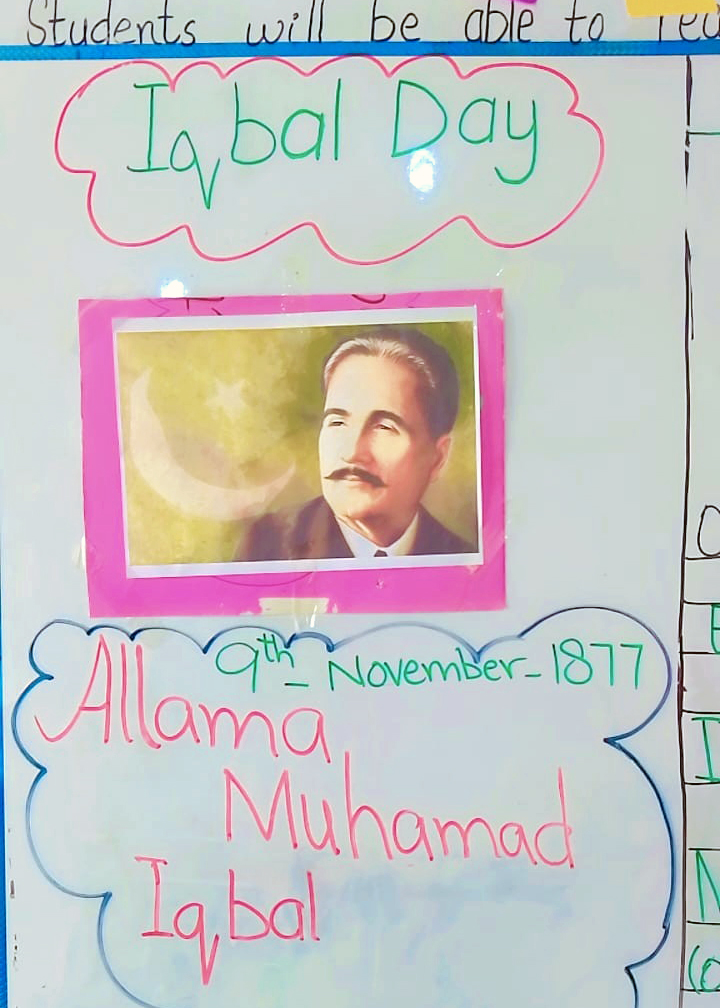 Students will be able to rea
Iqbal Day
9th - November - 1877
Allama
Muhamad
Iqbal